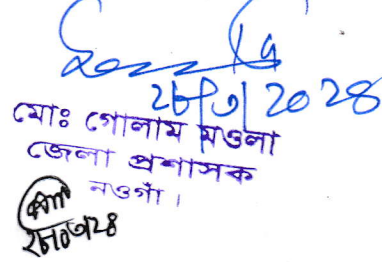 ২৮/৩/২০২৪
মোঃ গোলাম মওলা
জেলা প্রশাসক
নওগাঁ।
২৮/০৩/২৪